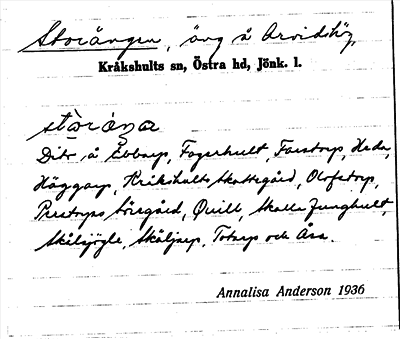 Storängen, äng å Arvidshög,
Kråkshults sn, Östra hd, Jönk. l.
Dito å Ebbarp, Fagerhult, Farstorp, Heda,
Häggarp, Kråkshults Skattegård, Olofstorp,
Perstorps Övregård, Quill, Skatte Ljunghult,
Skälsjögle, Skäljarp, Totarp och Åsa.
Annalisa Anderson 1936